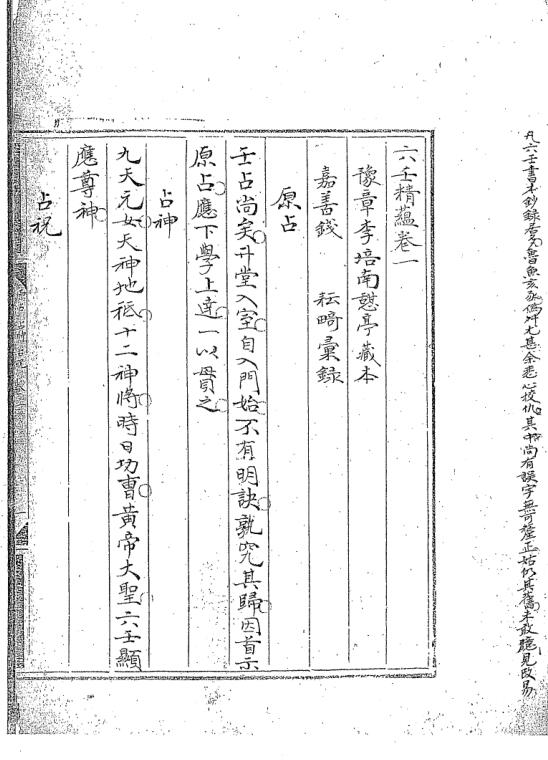 凡六壬書本鈔錄居多魯魚亥豕偽舛尤甚余悉心校仇其中尚有誤字無可釐正姑仍其舊未敢臆見改易
六壬精蘊卷一
豫章李培南憇亭藏本
嘉善錢 耘畸彙錄
原占
壬占尚矣升堂入室自入門始不有明訣孰究其歸因首示
原占應下學上達一以貫之
占神
九天元女天神地祗十二神將時日功曹黃帝大聖六壬顯
應尊神
占祝